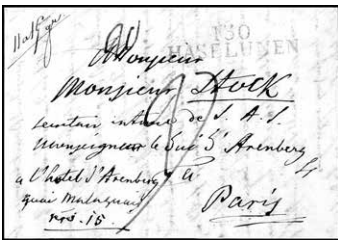 130
HASELUNEN
A Monsieur
Monsieur Stock
secretair intime de S. A. S.
Monseigneur le Duc d'Arenberg
a l'hotel d'Arenberg
a
quai Malaquai
Paris
nro. 15